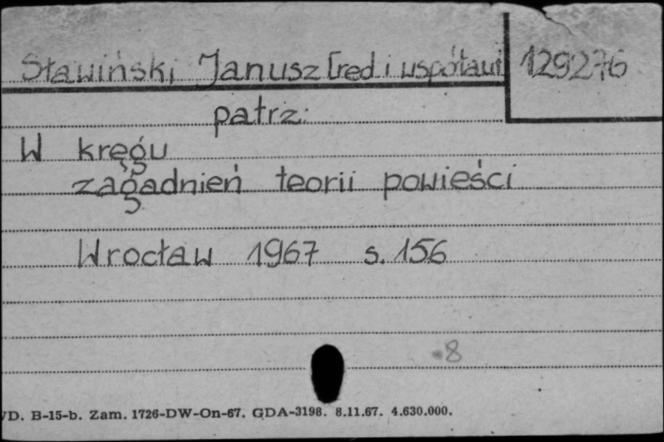 Sławiński Janusz [red i współaut
129276
patrz:
W kręgu
zagadnień teorii powieści
Wrocław 1967 s. 156
8
VD. B-15-b. Zam. 1726-DW-On-67. GDA-3198. 8.11.67. 4.630.000.